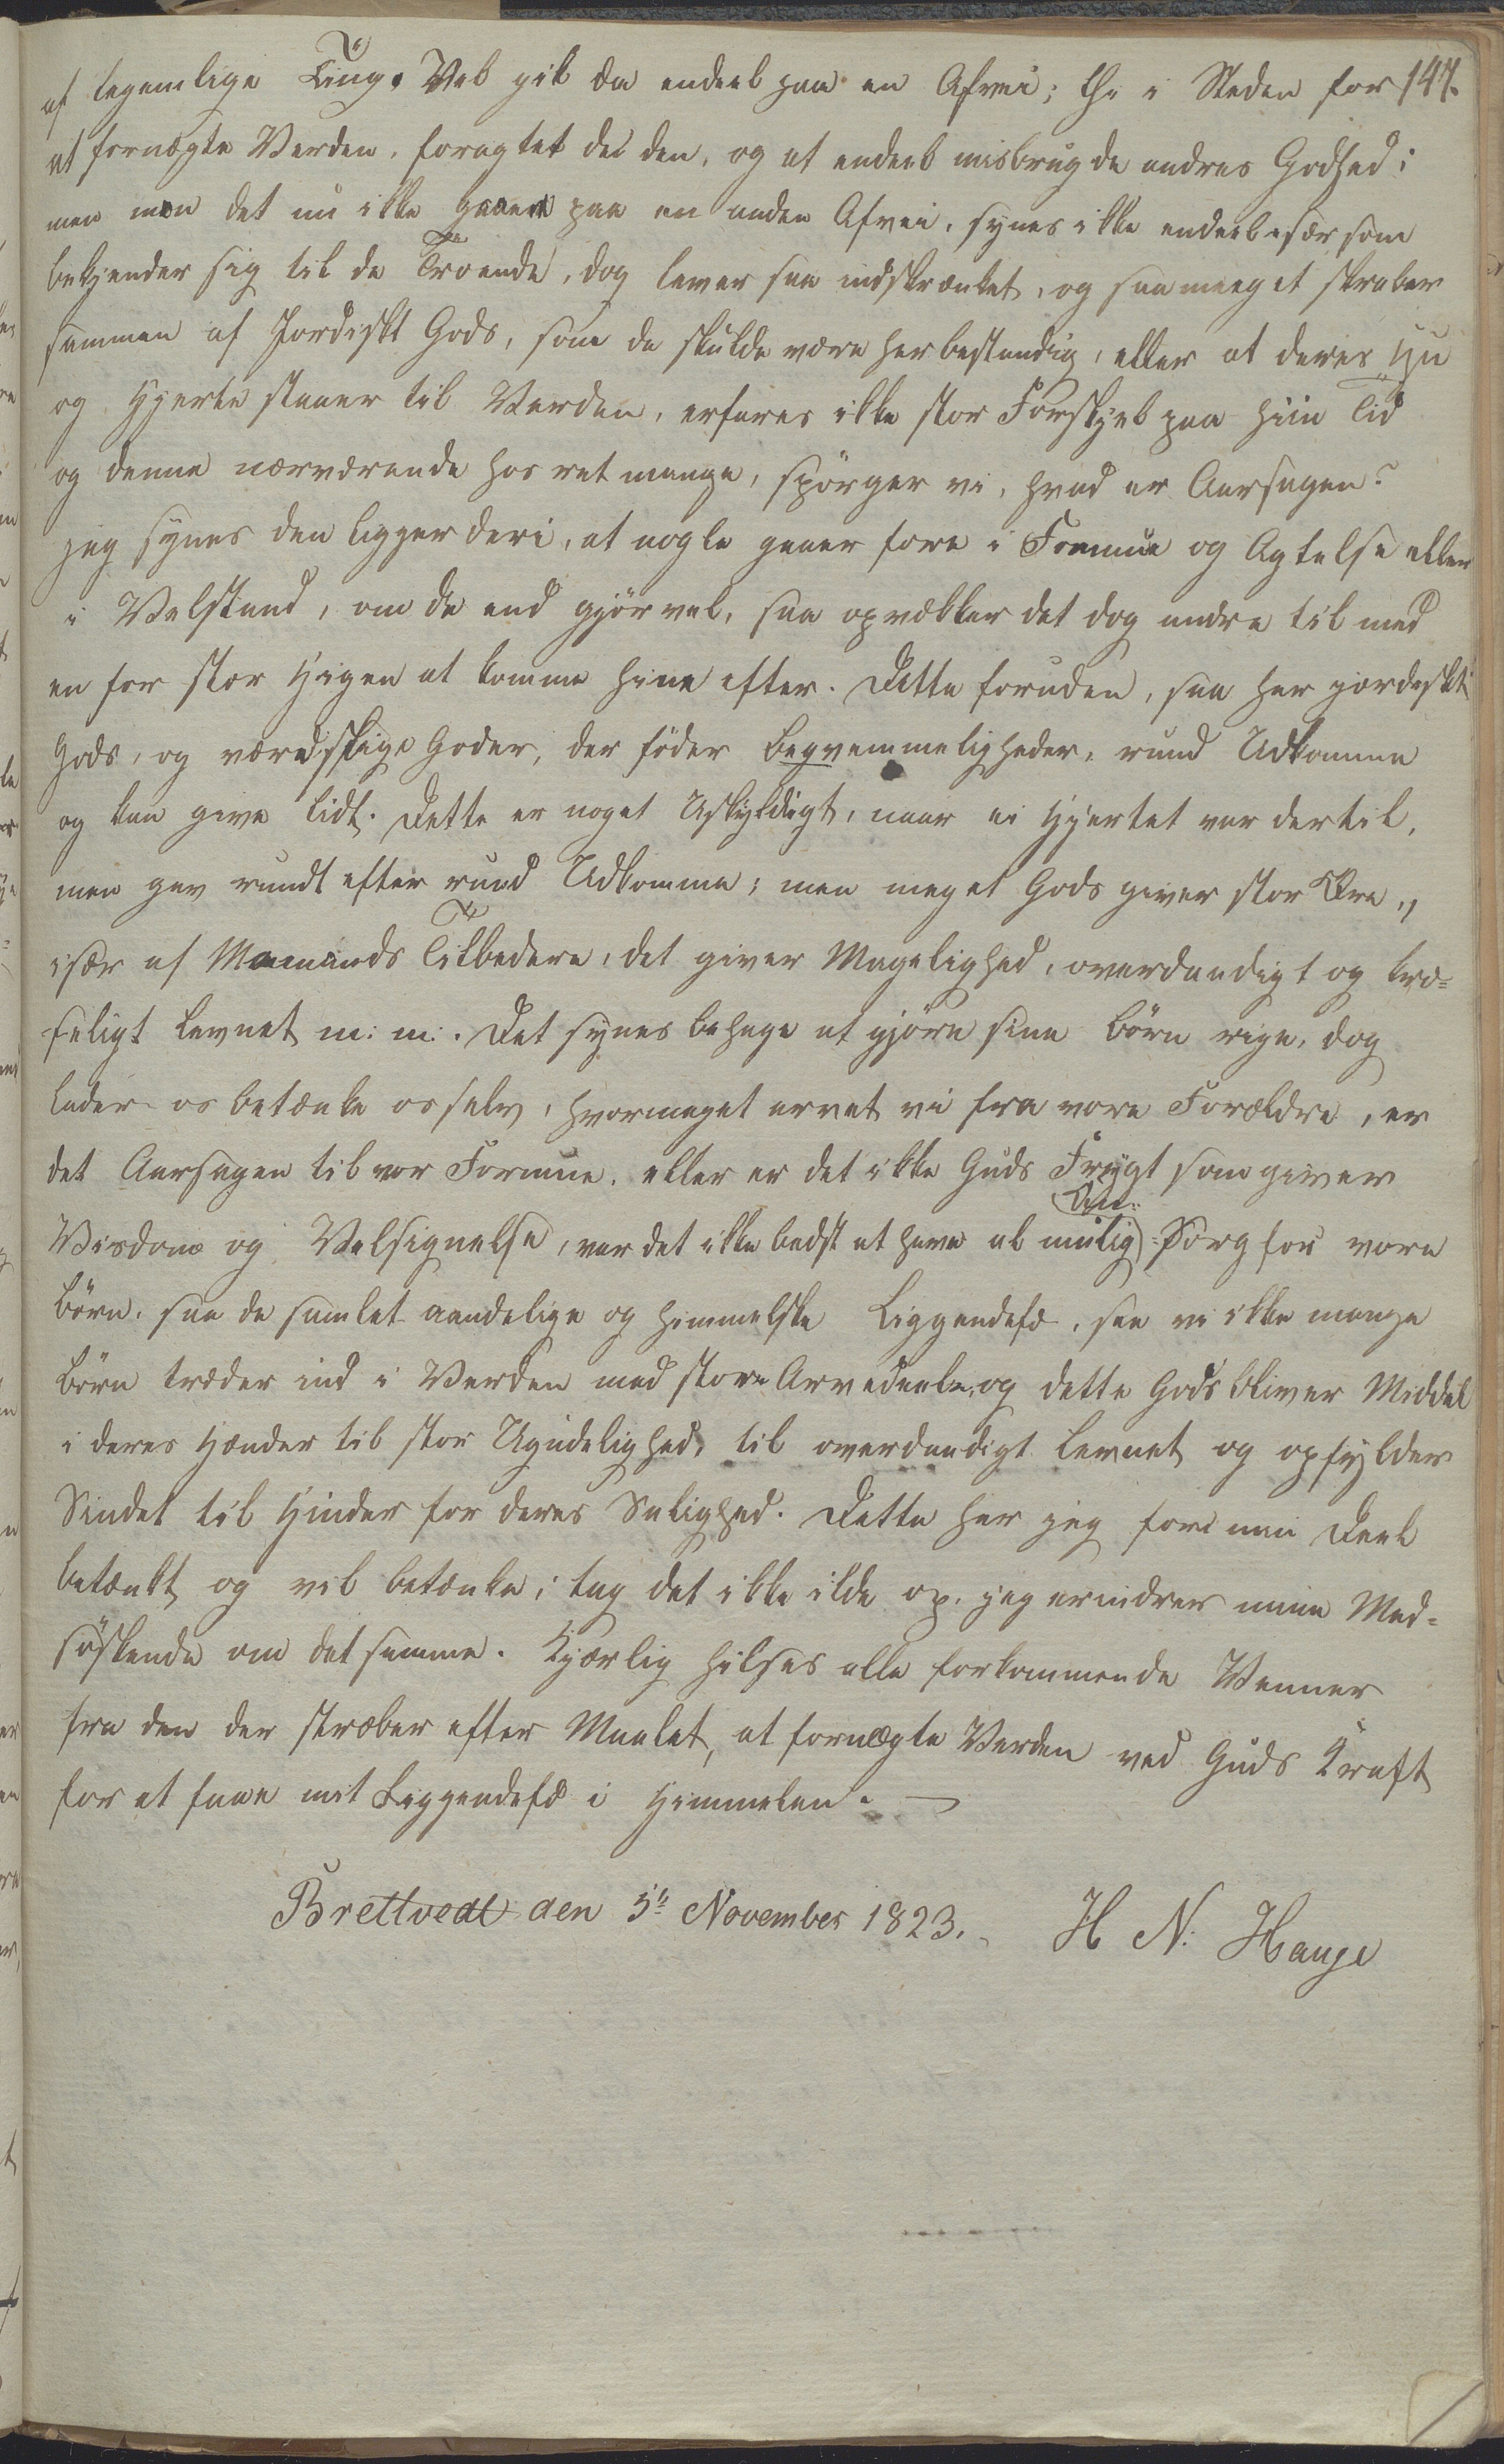 147.
af legemlige Ting. Vel gik da endeel paa en Afvei; thi i Steden for
at fornægte Verden, foragtet dei den, og at endeel misbrugde andres Godhed;
men mon det nu ikke gaaer paa en anden Afvei, synes ikke endeel især som
bekjender sig til de Troende, dog lever saa indskrænket, og saa meeget skraber
sammen af Jordiskt Gods, som de skulde være her bestandig, eller at deres Hu
og Hjerte staaer til Verden, erfares ikke stor Forskjel paa hiin Tid
og denne nærværende hos ret mange, spörger vi, hvad er Aarsagen?
jeg synes den ligger deri, at nogle gaaer fore i Formue og Agtelse eller
i Velstand, om de end gjör vel, saa opvækker det dog andre til med
en for stor Higen at komme hine efter. Dette foruden, saa har jordeskt
Gods, og værdslige Goder, der föder Beqvemmeligheder, rund Udkomme
og kan give lidt. Dette er noget Uskyldigt, naar ei Hjertet var dertil,
men gav rundt efter rund Udkomme; men meget Gods giver stor Ære,
især af Mammonds Tilbedere, det giver Magelighed, overdaadigt og kræ-
seligt Levnet m: m:. Det synes behage at gjöre sine Börn rige, dog
lader os betænke os selv, hvormeget arvet vi fra vore Forældre, er
det Aarsagen til vor Formue, eller er det ikke Guds Frygt som giver
Viisdom og Velsignelse, var det ikke bedst at have al mulig Om-
Sorg for vore
Börn, saa de samlet aandelige og himmelske Liggendefæ, see vi ikke mange
Börn træder ind i Verden med store Arvedeele, og dette Gods bliver Middel
i deres Hænder til stor Ugudelighed, til overdaadigt Levnet og opfylder
Sindet til Hinder for deres Salighed. Dette har jeg fore min Deel
betænkt og vil betænke; tag det ikke ilde op, jeg erindrer mine Med-
söskende om det samme. Kjærlig hilses alle forkommende Venner
fra den der stræber efter Maalet, at fornægte Verden ved Guds Kraft
for at faae mit Liggendefæ i Himmelen.
Brettvedt den 5te November 1823. H N: Hauge